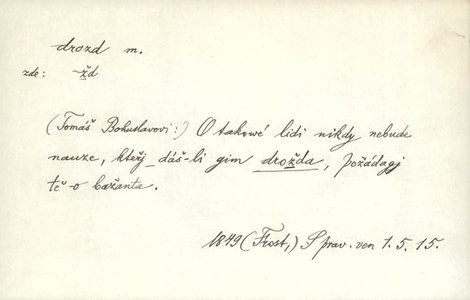 drozd m.
zde: -žd
(Tomáš Bohuslavovi:) O takowé lidi nikdy nebude
nauze, kteřj dáš-li gim drožda, požádagj
tě o bažanta.
1849 (Frost,) S prav. ven 1.5.15.